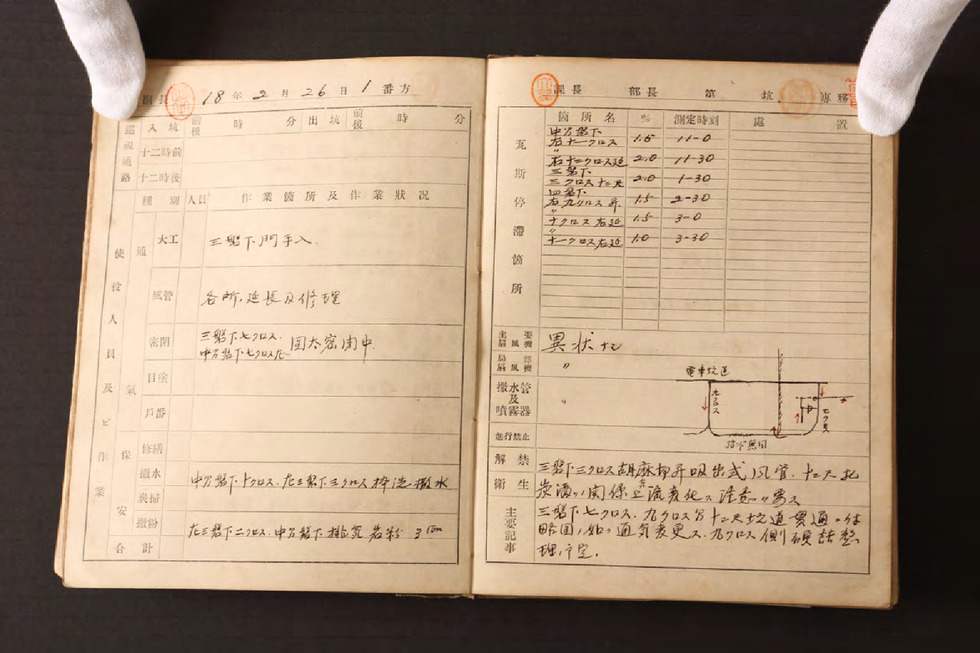 18年2月26日1番方
巡視通路 入坑 前後 時 分 出坑 前後 時 分
十二時前
十二時後
使役人員及ビ作業
種別 人員 作業箇所及作業状況
通気保安
大工 三盤下門手入.
風管 各所.延長及修理
密閉 三盤下七クロス.
中万盤下七クロス 密閉中
目塗
戸番
修繕
撒水 中万盤下十クロス.左三盤下三クロス 撒水
炭掃
撒粉 左三盤下二クロス.中万盤下排気岩粉
合計
課長 部長 第 坑 専務
瓦斯停滞箇所
箇所名 % 測定時刻 処置
中万盤下
右十一クロス 1.5 11-0
〃
右十一クロス延 2.0 11-30
三盤下
三クロス十二尺 2.0 1-30
四盤下
右九クロス昇 1.5 2-30
〃
十クロス右延 1.5 3-0
〃
十一クロス右延 1.0 3-30
主要扇風機 異状ナシ
局部扇風機 〃
撒水管及噴霧器 〃
電車坑道
九クロス
七クロス
進行禁止
解禁
衛生
三盤下三クロス 昇吸出式風管.十二尺
主要記事
三盤下七クロス.九クロス 十二尺坑道貫通
略図ノ如ク通気変更ス.九クロス側 整
理